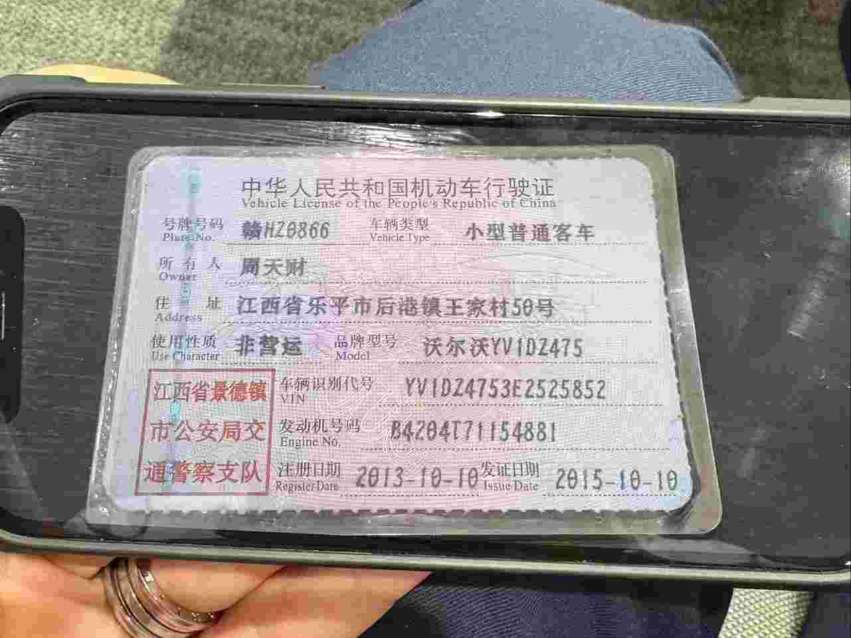 中华人民共和国机动车行驶证
Vehicle License of the People's Republic of China
号牌号码 赣HZ0866 车辆类型 小型普通客车
Plate No. Vehicle Type
所有人 周天财
Owner
住址 江西省乐平市后港镇王家村50号
Address
使用性质 非营运 品牌型号 沃尔沃YV1DZ475
Use Character Model
江西省景德镇 车辆识别代号 YV1DZ4753E2525852
VIN
市公安局交 发动机号码 B4204T71154881
Engine No.
通警察支队 注册日期 2013-10-10 发证日期 2015-10-10
Register Date Issue Date